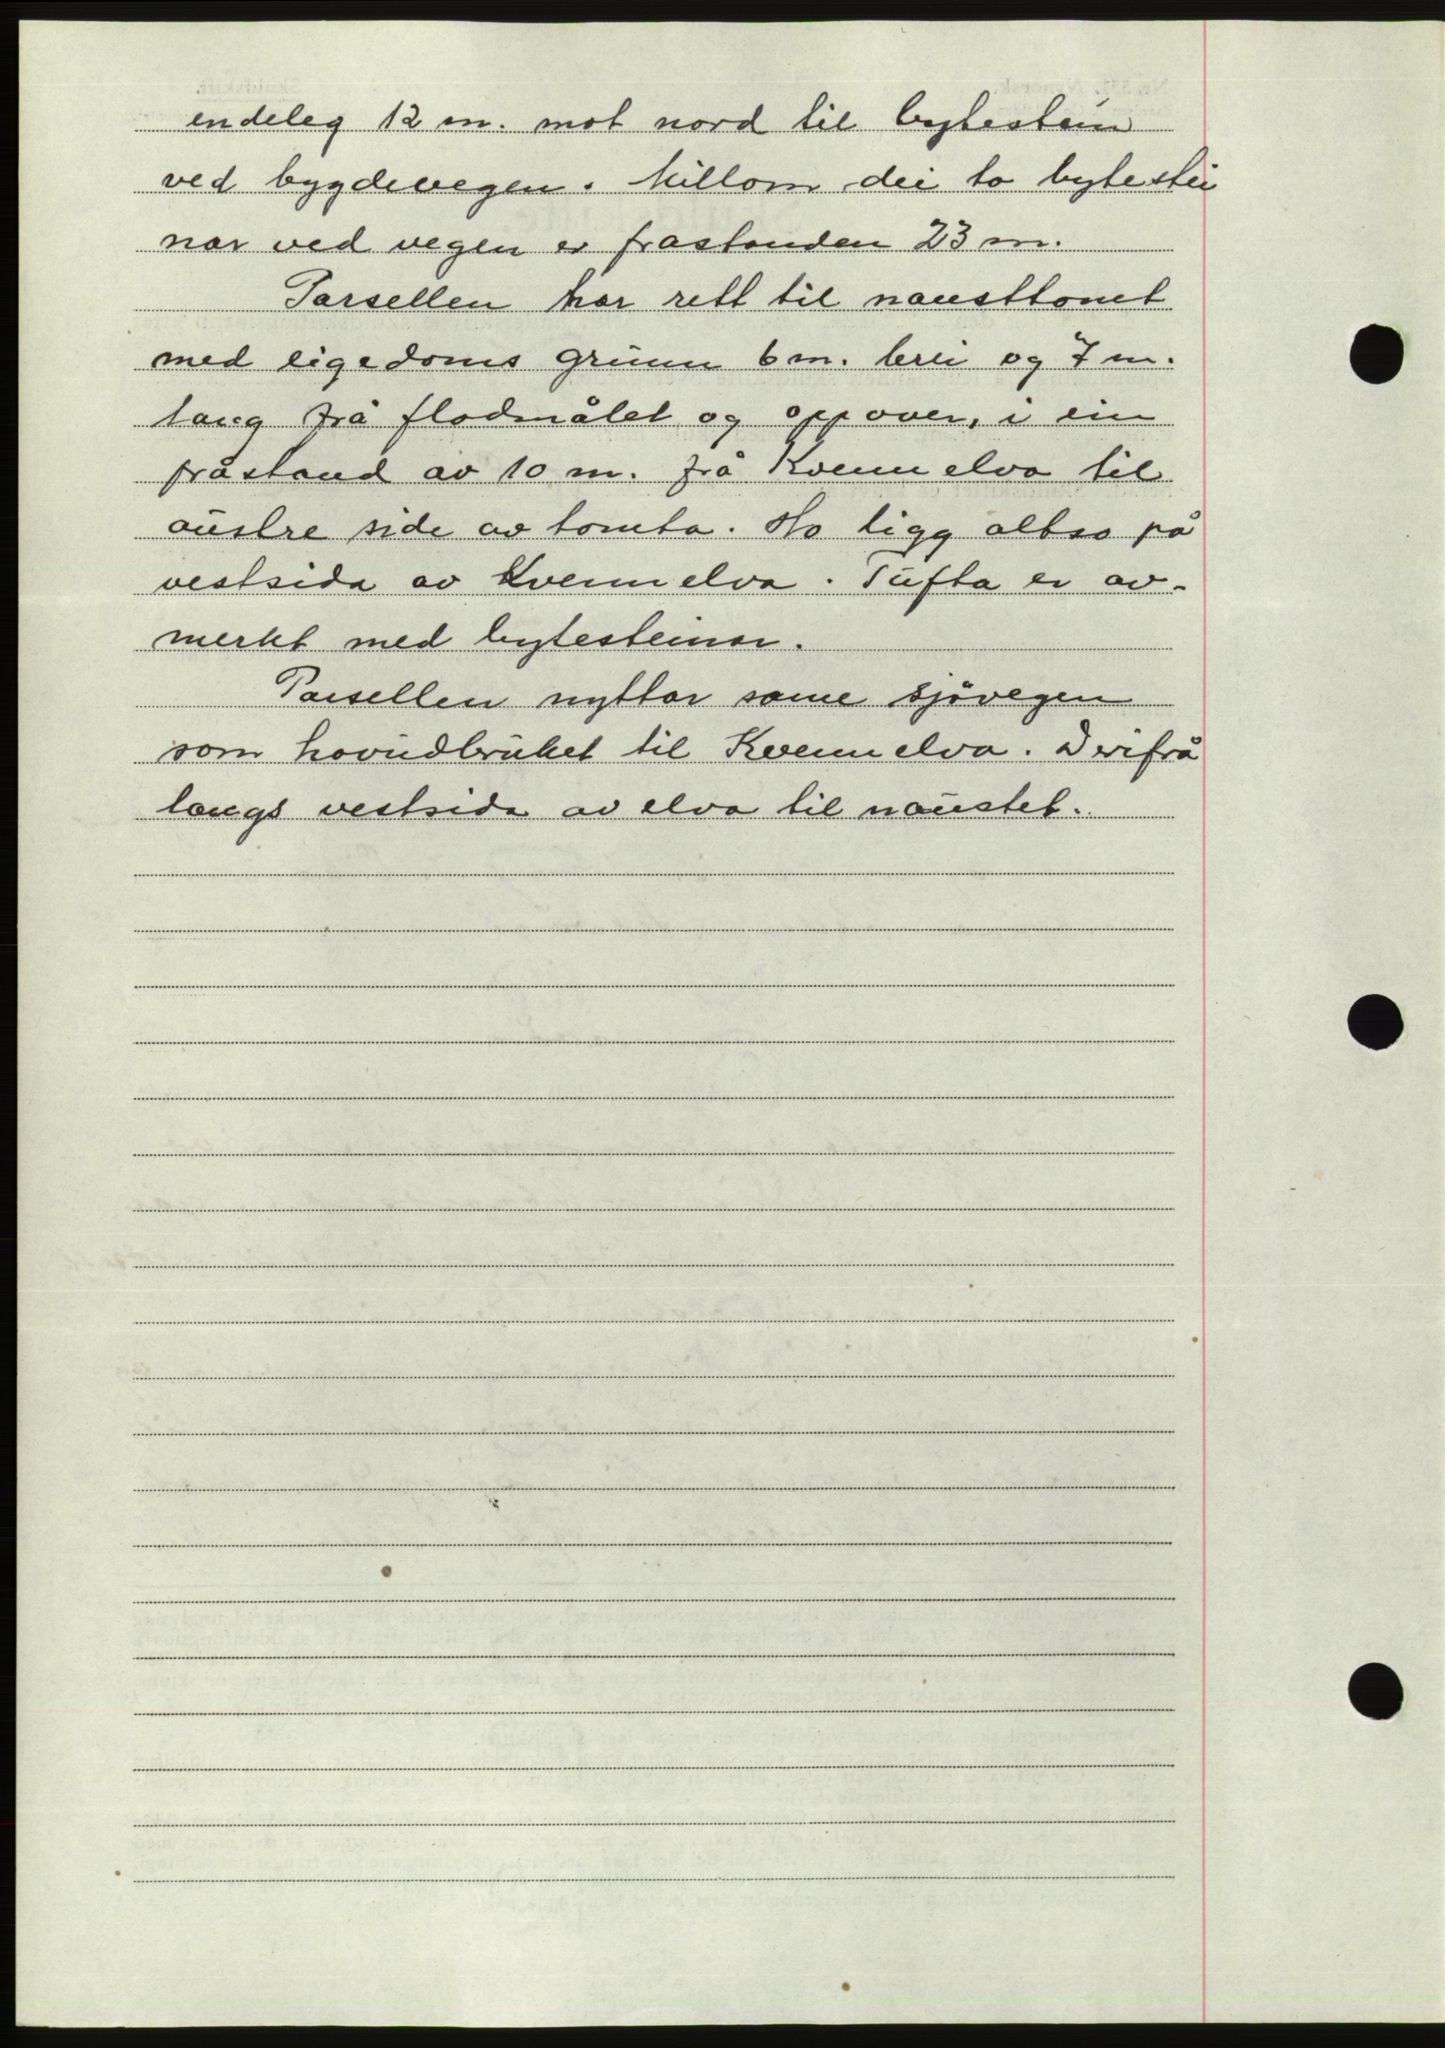 endeleg 12 m. mot nord til bytestein
ved bygdevegen. Millom dei to bytestei
nar ved vegen er frastanden 23 m.
Parsellen har rett til nausttomt
med eigedoms grunn 6 m. brei og 7 m.
lang frå flodmålet og oppover, i ein
fråstand av 10 m. frå Kvennelva til
austre side av tomta. Ho ligg altso på
vestsida av Kvennelva. Tufta er av-
merkt med bytesteinar.
Parsellen nyttar same sjövegen
som hovudbruket til Kvennelva. Derifrå
langs vestsida av elva til naustet.